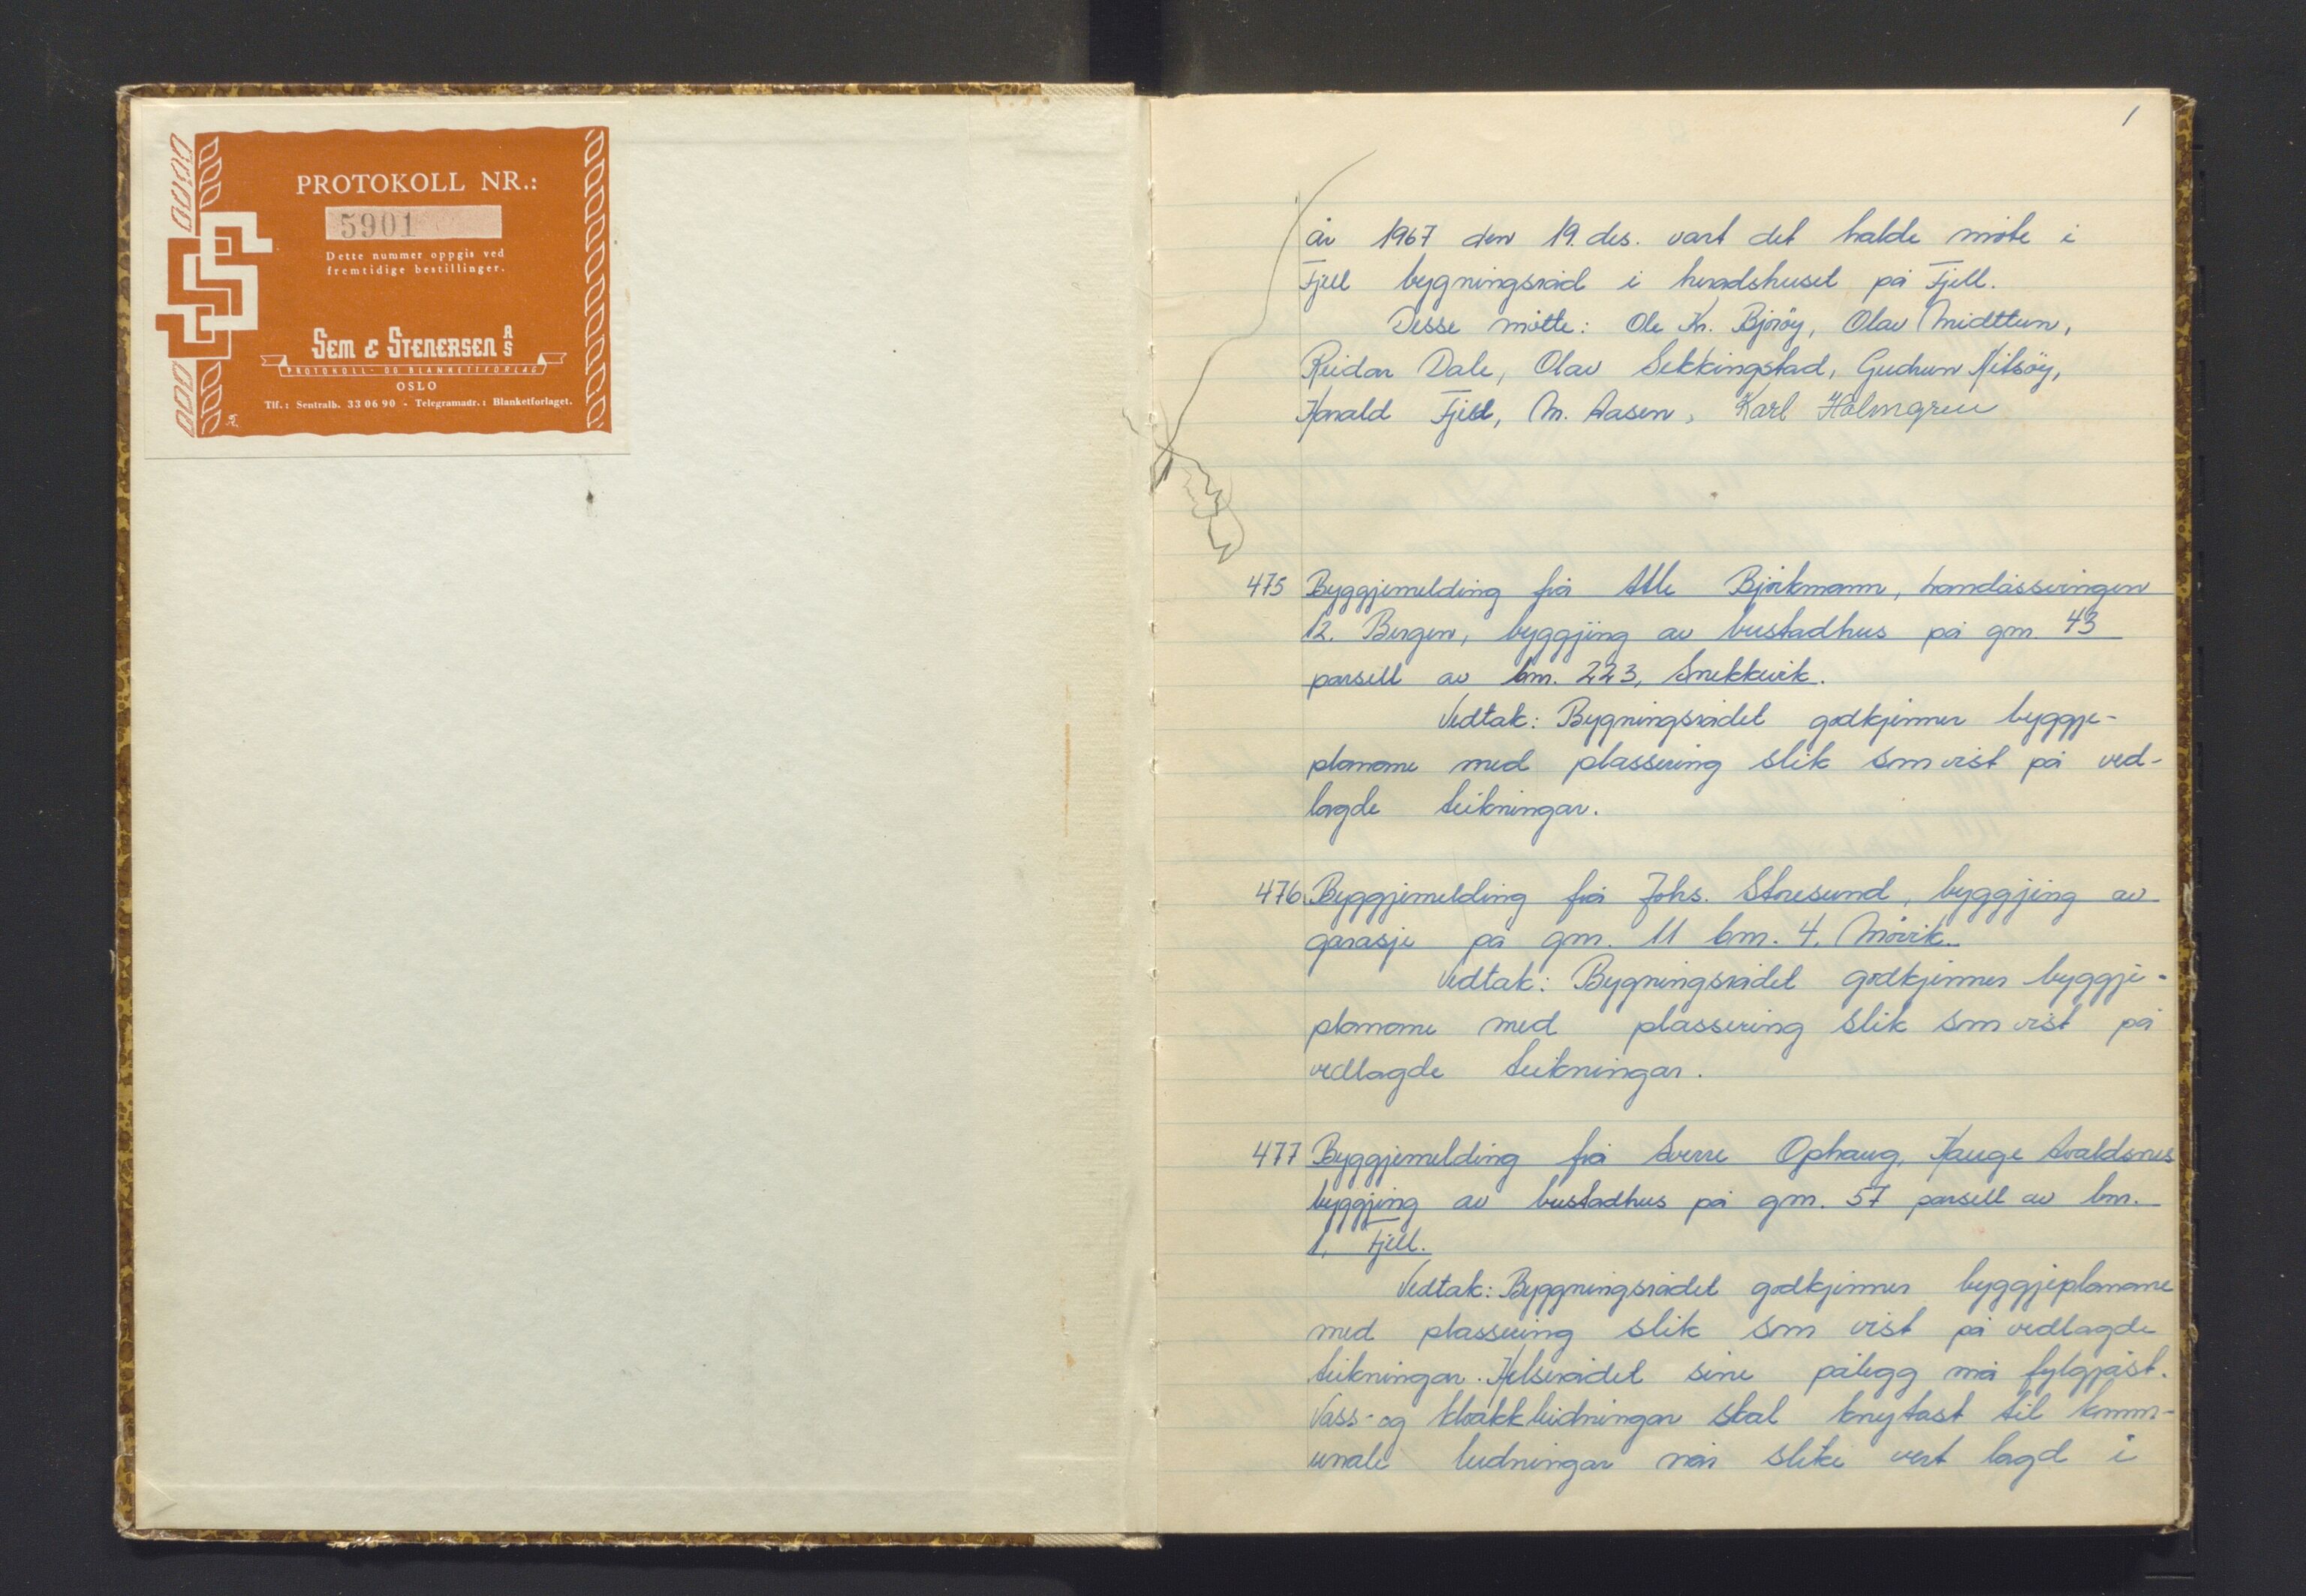 PROTOKOLL NR.:
5901
Dette nummer oppgis ved
fremtidige bestillinger.
SEM & STENERSEN A/S
PROTOKOLL- OG BLANKETTFORLAG
OSLO
Tlf.: Sentralb. 33 06 90 - Telegramadr.: Blanketforlaget.
1
År 1967 den 19. des. vart det halde møte i
Fjell bygningsråd i heradshuset på Fjell.
Desse møtte: Ole Kr. Bjorøy, Olav Midttun,
Reidar Dale, Olav Sekkingstad, Gudrun Nitsøy,
Harald Fjell, M. Aasen, Karl Holmgren
475 Byggjemelding frå Atle Bjørkmann, Landåssvingen
12. Bergen, byggjing av bustadhus på gnr. 43
parsell av bnr. 223, Snekkevik.
Vedtak: Bygningsrådet godkjenner byggje-
planane med plassering slik som vist på ved-
lagde teikningar.
476 Byggjemelding frå Johs. Storesund, byggjing av
garasje på gnr. 11 bnr. 4. Møvik.
Vedtak: Bygningsrådet godkjenner byggje-
planane med plassering slik som vist på
vedlagde teikningar.
477 Byggjemelding frå Sverre Ophaug, Hauge Avaldsnes
byggjing av bustadhus på gnr. 57 parsell av bnr.
1, Fjell.
Vedtak: Byggningsrådet godkjenner byggjeplanane
med plassering slik som vist på vedlagde
teikningar. Helserådet sine pålegg må fylgjast.
Vass- og kloakkleidningar skal knytast til komm-
unale leidningar når slike vert lagd i